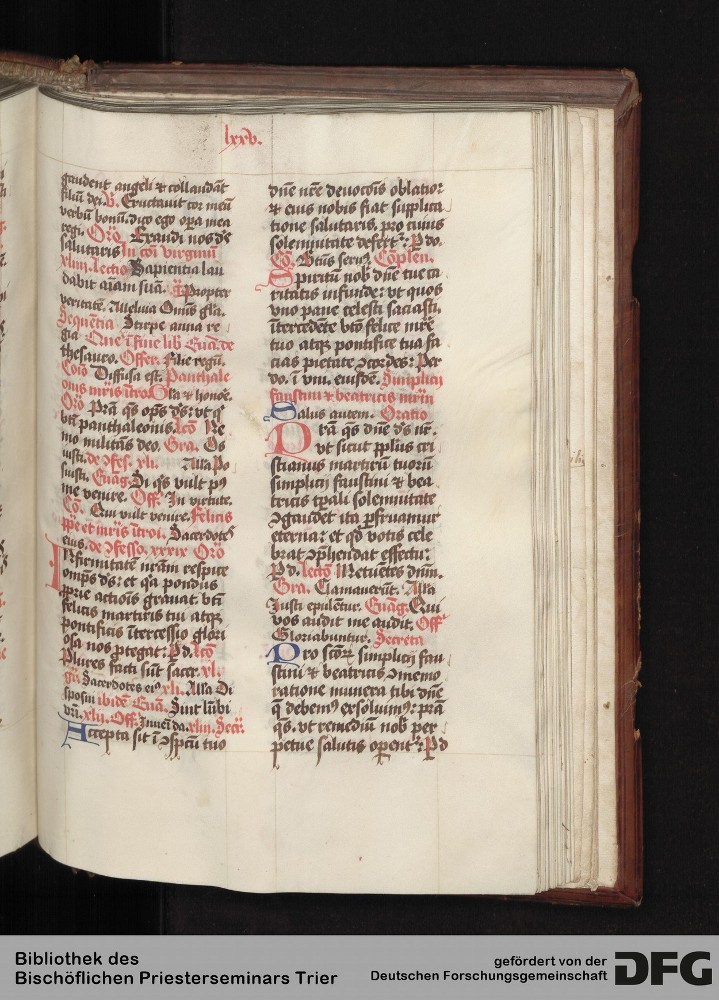 lxxv.
gaudent angeli et collaudāt
filiū dei. V. Eructauit cor meū
verbū bonū. dico ego opa mea
regi. Orō. Exaudi nos ds
salutaris In cōi virginū
xliiii. lectio Sapientia lau
dabit aīam suā. Propter
veritatē. Alleluia Oīnis gla.
Sequentia Stirpe anna re
gia Que ī fine lib
thesauro. Offer. Filie regū.
Cōio Diffusa est. Panthale
onis mr̄is ītro. Gla et honoē.
Orō Prā qs ops ds: vt q
btī panthaleonis. lcō Ne
mo militās deo. Gra. Os
iusti. de ɔfes. xli. Alla Po
suisti. Euāg. Si qs vult pꝯ
me venire. Off. In virtute.
Cō. Qui vult venire. Felicis
ppe et mr̄is ītroi. Sacerdotes
eius. de ɔfesso. xxxix Orō
Infirmitatē nrām respice
omps ds: et qa pondus
pprie actiōis grauat. btī
felicis martiris tui atqꝫ
pontificis ītercessio glori
osa nos ptegat: P d. lcō
Plures facti sūt sacer. xl.
gra Sacerdotes eiꝯ xli. Alla Di
sposui ibidē Euā. Sint lūbi
vri. xlii. Off. Inueni da. xliii. Secr.
Accepta sit ī ɔspcū tuo
dn̄e nrē deuocōis oblatio:
et eius nobis fiat supplica
tione salutaris. pro cuius
solemnitate defert: P do.
Cō. Btūs seruꝯ Cōplen.
Spiritū nob dn̄e tue ca
ritatis infunde: vt quos
vno pane celesti saciasti.
ītercedēte bto felice mr̄e
tuo atqꝫ pontifice tua fa
cias pietate ɔcordes: Per
do. ī vni. eiusdē. Simplicij
faustini et beatricis mr̄iū
Salus autem. Oratio
Prā qs dn̄e ds nr̄.
vt sicut pplus cri
stianus martirū tuorū
simplicij faustini et bea
tricis tpali solemnitate
ɔgaudet ita pfruamur
eterna: et qd votis cele
brat ɔphendat effectu:
P d. lectō Metuētes dn̄m.
Gra. Clamauerūt. Alla
Iusti epulētur. Euāg. Qui
vos audit me audit. Off
Gloriabuntur. Secreta
Pro scōꝝ simplicij fau
stini et beatricis ɔmemo
ratione munera tibi dn̄e
q debemꝯ exsoluimꝯ: prā
qs. vt remediū nob per
petue salutis opent: P d
Bibliothek des
Bischöflichen Priesterseminars Trier
gefördert von der
Deutschen Forschungsgemeinschaft
DFG